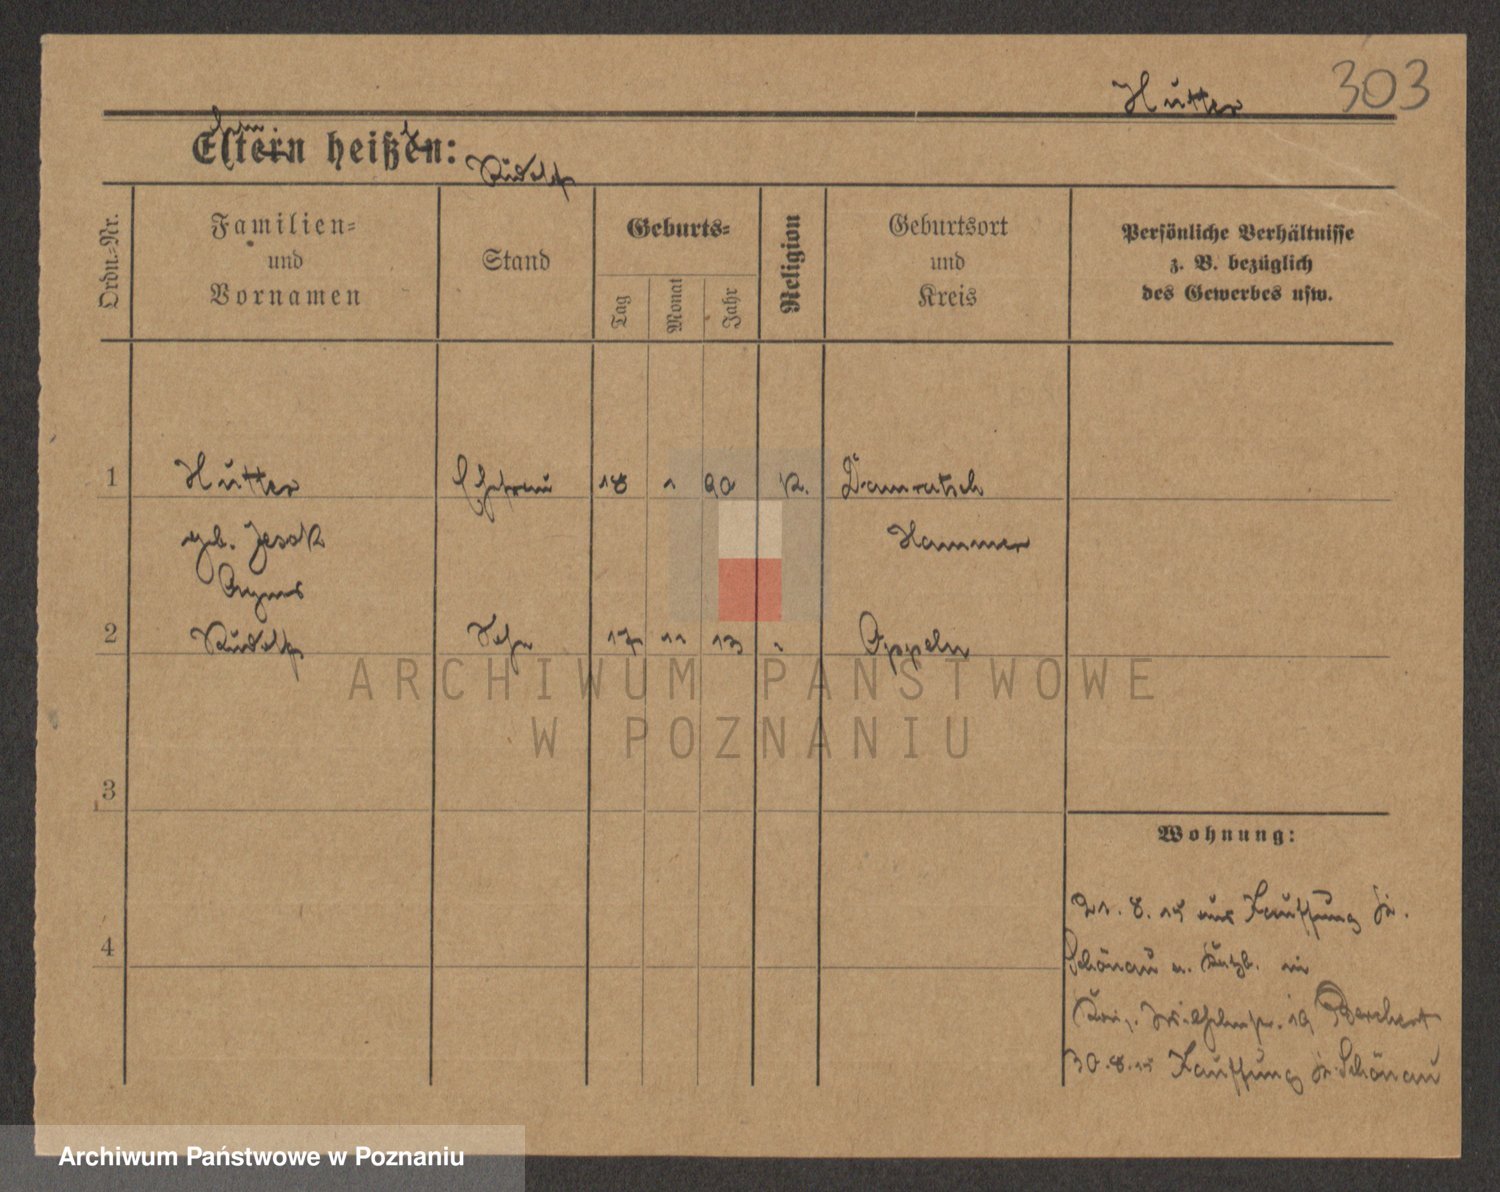 Hutter 303
Eltern heißen:
Rudolf
Ordn.-Nr.
Familien-
und
Vornamen
Stand
Geburts-
Tag
Monat
Jahr
Religion
Geburtsort
und
Kreis
Persönliche Verhältnisse
z. B. bezüglich
des Gewerbes usw.
1 Hutter Ehefrau 18 1 90 K. Damratsch
geb. Jesok Hammer
Agnes
2 Rudolf Sohn 17 11 13 " Oppeln
3
4
Wohnung:
21. 8. 15 aus Kauffung Kr.
Schönau a. Katzb. in
Wilhelmstr. 19
30.8.15 Kauffung Kr. Schönau
ARCHIWUM PAŃSTWOWE
W POZNANIU
Archiwum Państwowe w Poznaniu